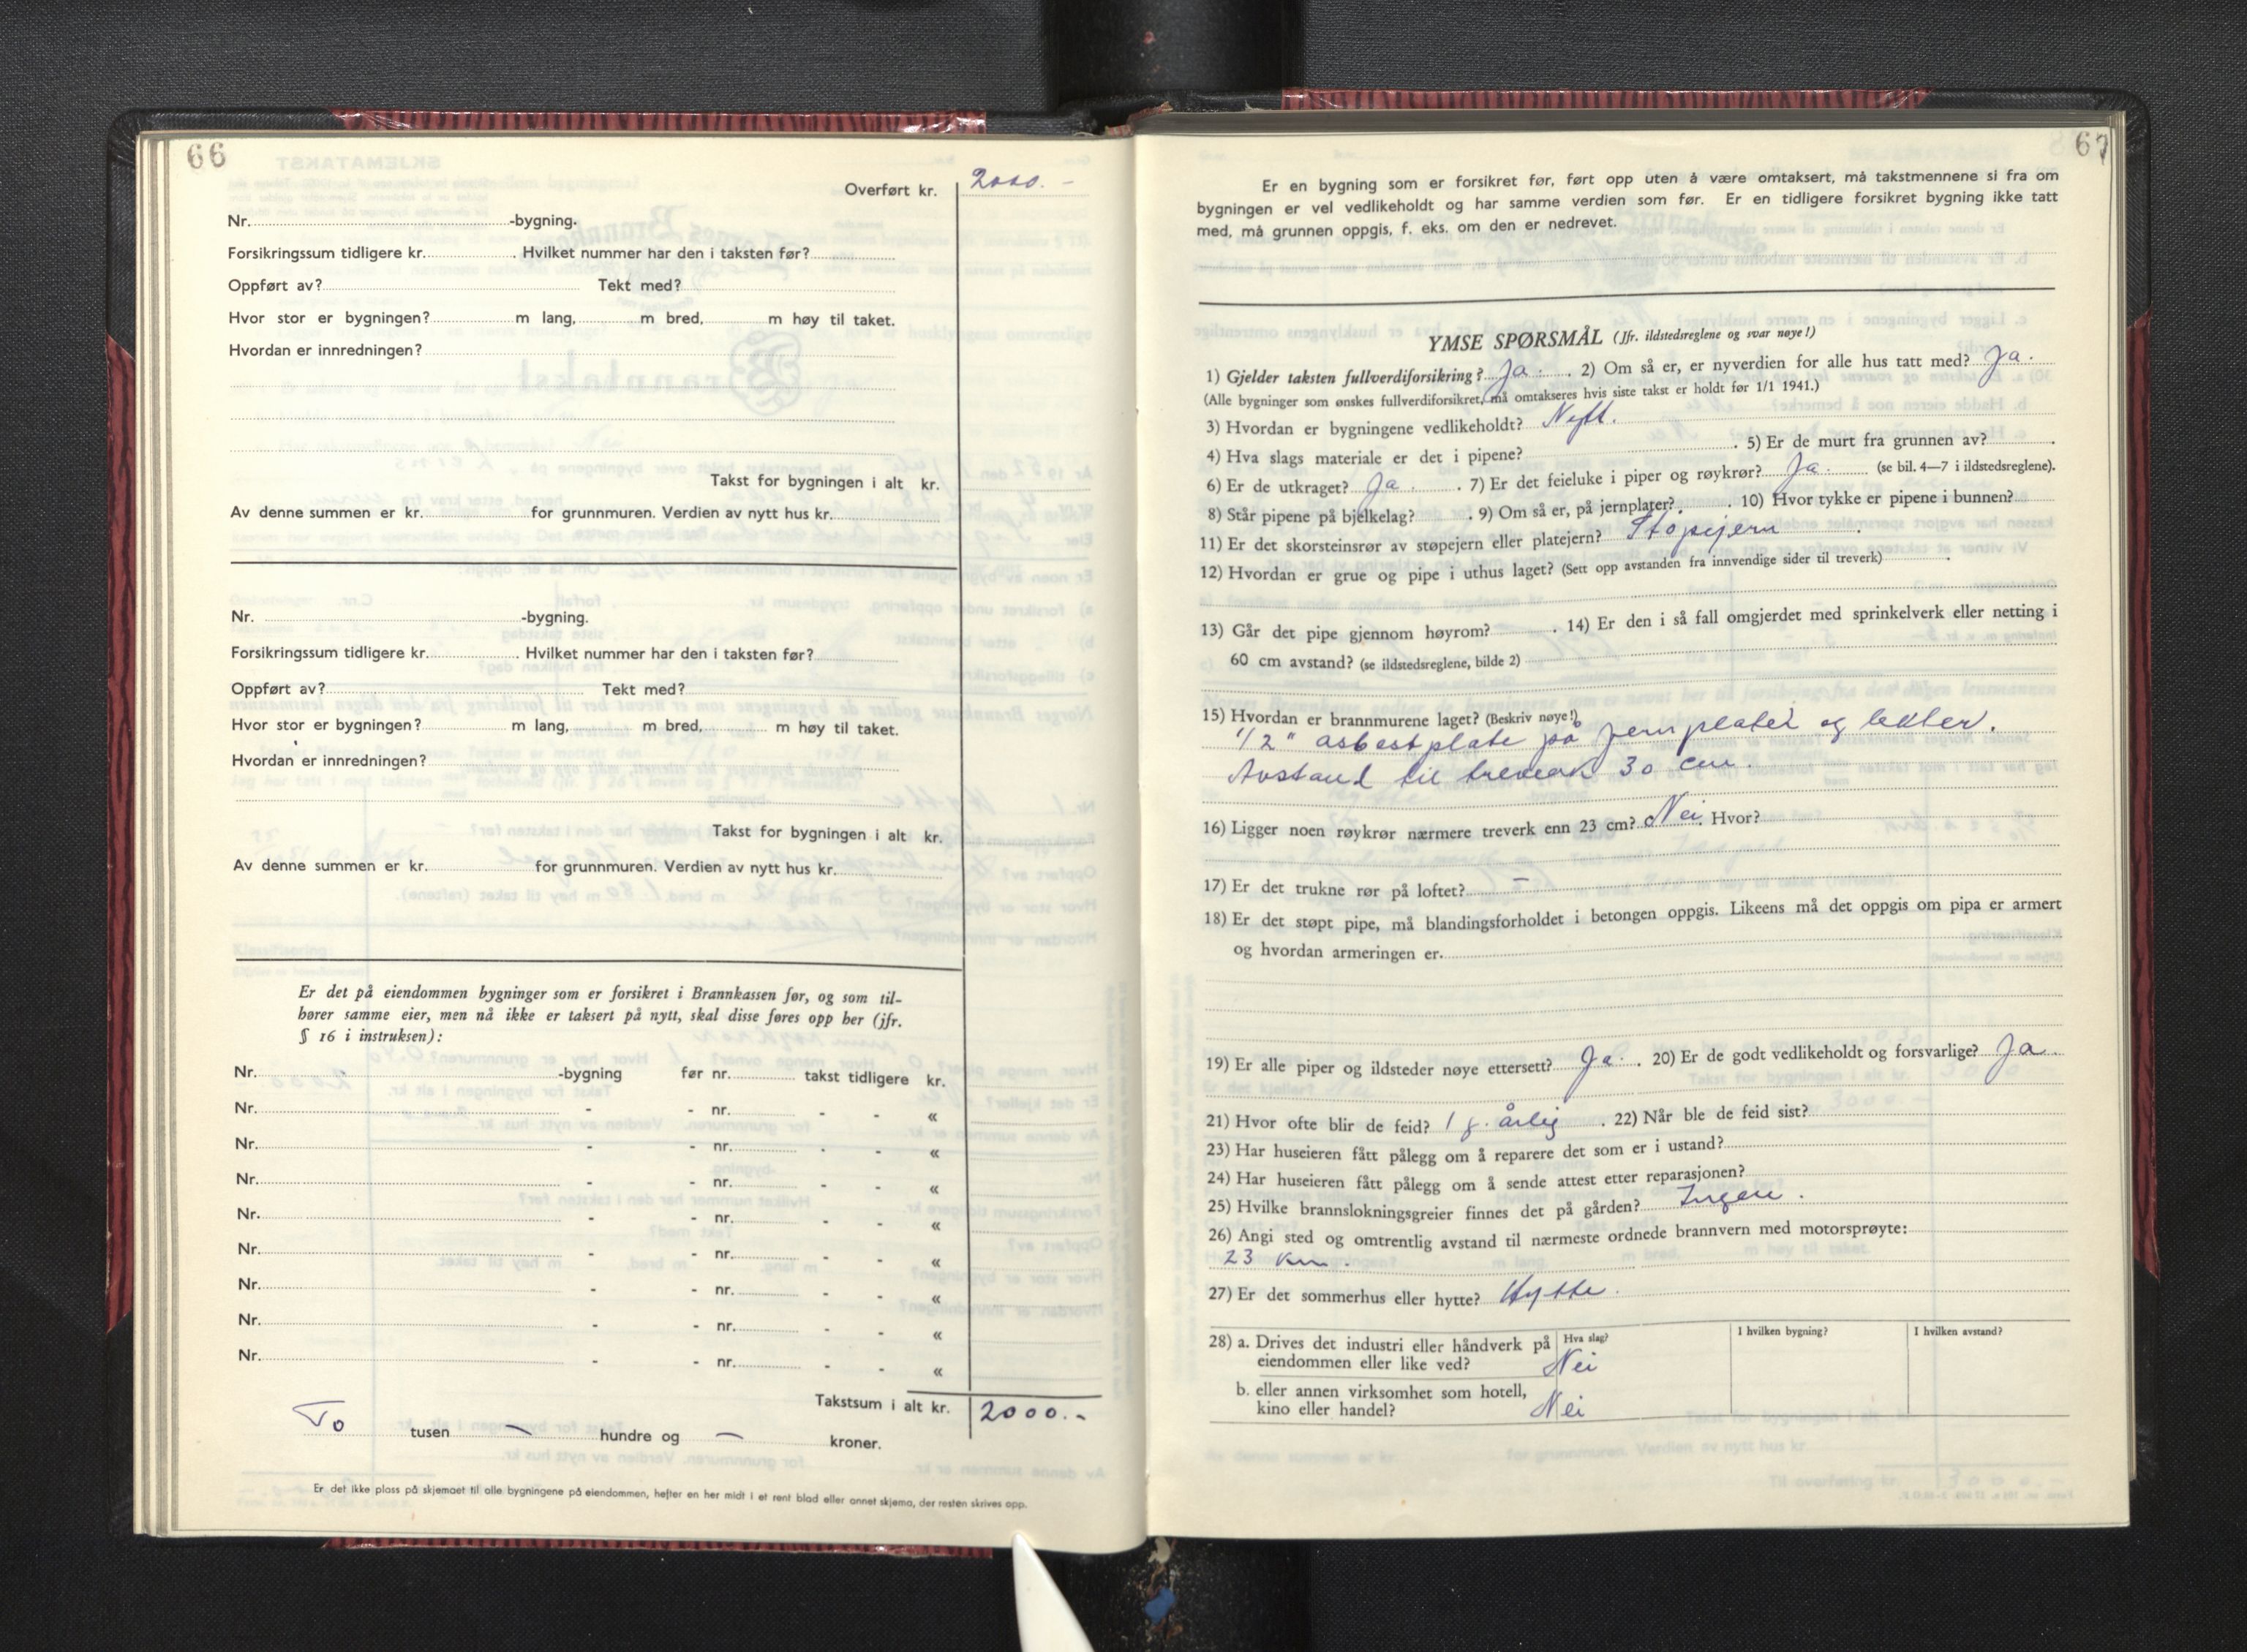 66
Overført kr. 2000.-
Nr. -bygning.
Forsikringssum tidligere kr. . Hvilket nummer har den i taksten før?
Oppført av? Tekt med?
Hvor stor er bygningen? m lang, m bred, m høy til taket.
Hvordan er innredningen?
Takst for bygningen i alt kr.
Av denne summen er kr. for grunnmuren. Verdien av nytt hus kr.
Nr. -bygning.
Forsikringssum tidligere kr. . Hvilket nummer har den i taksten før?
Oppført av? Tekt med?
Hvor stor er bygningen? m lang, m bred, m høy til taket.
Hvordan er innredningen?
Takst for bygningen i alt kr.
Av denne summen er kr. for grunnmuren. Verdien av nytt hus kr.
Er det på eiendommen bygninger som er forsikret i Brannkassen før, og som til-
hører samme eier, men nå ikke er taksert på nytt, skal disse føres opp her (jfr.
§ 16 i instruksen):
Nr. -bygning før nr. takst tidligere kr.
Nr. - - nr. - - «
Nr. - - nr. - - «
Nr. - - nr. - - «
Nr. - - nr. - - «
Nr. - - nr. - - «
Nr. - - nr. - - «
Nr. - - nr. - - «
Nr. - - nr. - - «
Takstsum i alt kr. 2000.-
To tusen — hundre og — kroner.
Er det ikke plass på skjemaet til alle bygningene på eiendommen, hefter en her midt i et rent blad eller annet skjema, der resten skrives opp.
67
Er en bygning som er forsikret før, ført opp uten å være omtaksert, må takstmennene si fra om
bygningen er vel vedlikeholdt og har samme verdien som før. Er en tidligere forsikret bygning ikke tatt
med, må grunnen oppgis, f. eks. om den er nedrevet.
YMSE SPØRSMÅL (Jfr. ildstedsreglene og svar nøye!)
1) Gjelder taksten fullverdiforsikring? Ja. . 2) Om så er, er nyverdien for alle hus tatt med? Ja.
(Alle bygninger som ønskes fullverdiforsikret, må omtakseres hvis siste takst er holdt før 1/1 1941.)
3) Hvordan er bygningene vedlikeholdt? Nytt.
4) Hva slags materiale er det i pipene? . 5) Er de murt fra grunnen av? .
6) Er de utkraget? Ja. . 7) Er det feieluke i piper og røykrør? Ja. (se bil. 4—7 i ildstedsreglene).
8) Står pipene på bjelkelag? . 9) Om så er, på jernplater? . 10) Hvor tykke er pipene i bunnen?
11) Er det skorsteinsrør av støpejern eller platejern? Støpejern .
12) Hvordan er grue og pipe i uthus laget? (Sett opp avstanden fra innvendige sider til treverk) .
13) Går det pipe gjennom høyrom? . 14) Er den i så fall omgjerdet med sprinkelverk eller netting i
60 cm avstand? (se ildstedsreglene, bilde 2)
15) Hvordan er brannmurene laget? (Beskriv nøye!)
1/2" asbestplate på jernplater og lekter.
Avstand til treverk 30 cm.
16) Ligger noen røykrør nærmere treverk enn 23 cm? Nei. Hvor?
17) Er det trukne rør på loftet? —
18) Er det støpt pipe, må blandingsforholdet i betongen oppgis. Likeens må det oppgis om pipa er armert
og hvordan armeringen er.
19) Er alle piper og ildsteder nøye ettersett? Ja. . 20) Er de godt vedlikeholdt og forsvarlige? Ja.
21) Hvor ofte blir de feid? 1 g. årlig . 22) Når ble de feid sist?
23) Har huseieren fått pålegg om å reparere det som er i ustand?
24) Har huseieren fått pålegg om å sende attest etter reparasjonen?
25) Hvilke brannslokningsgreier finnes det på gården? Ingen.
26) Angi sted og omtrentlig avstand til nærmeste ordnede brannvern med motorsprøyte:
23 km.
27) Er det sommerhus eller hytte? Hytte.
28) a. Drives det industri eller håndverk på Hva slag? I hvilken bygning? I hvilken avstand?
eiendommen eller like ved? Nei
b. eller annen virksomhet som hotell,
kino eller handel? Nei